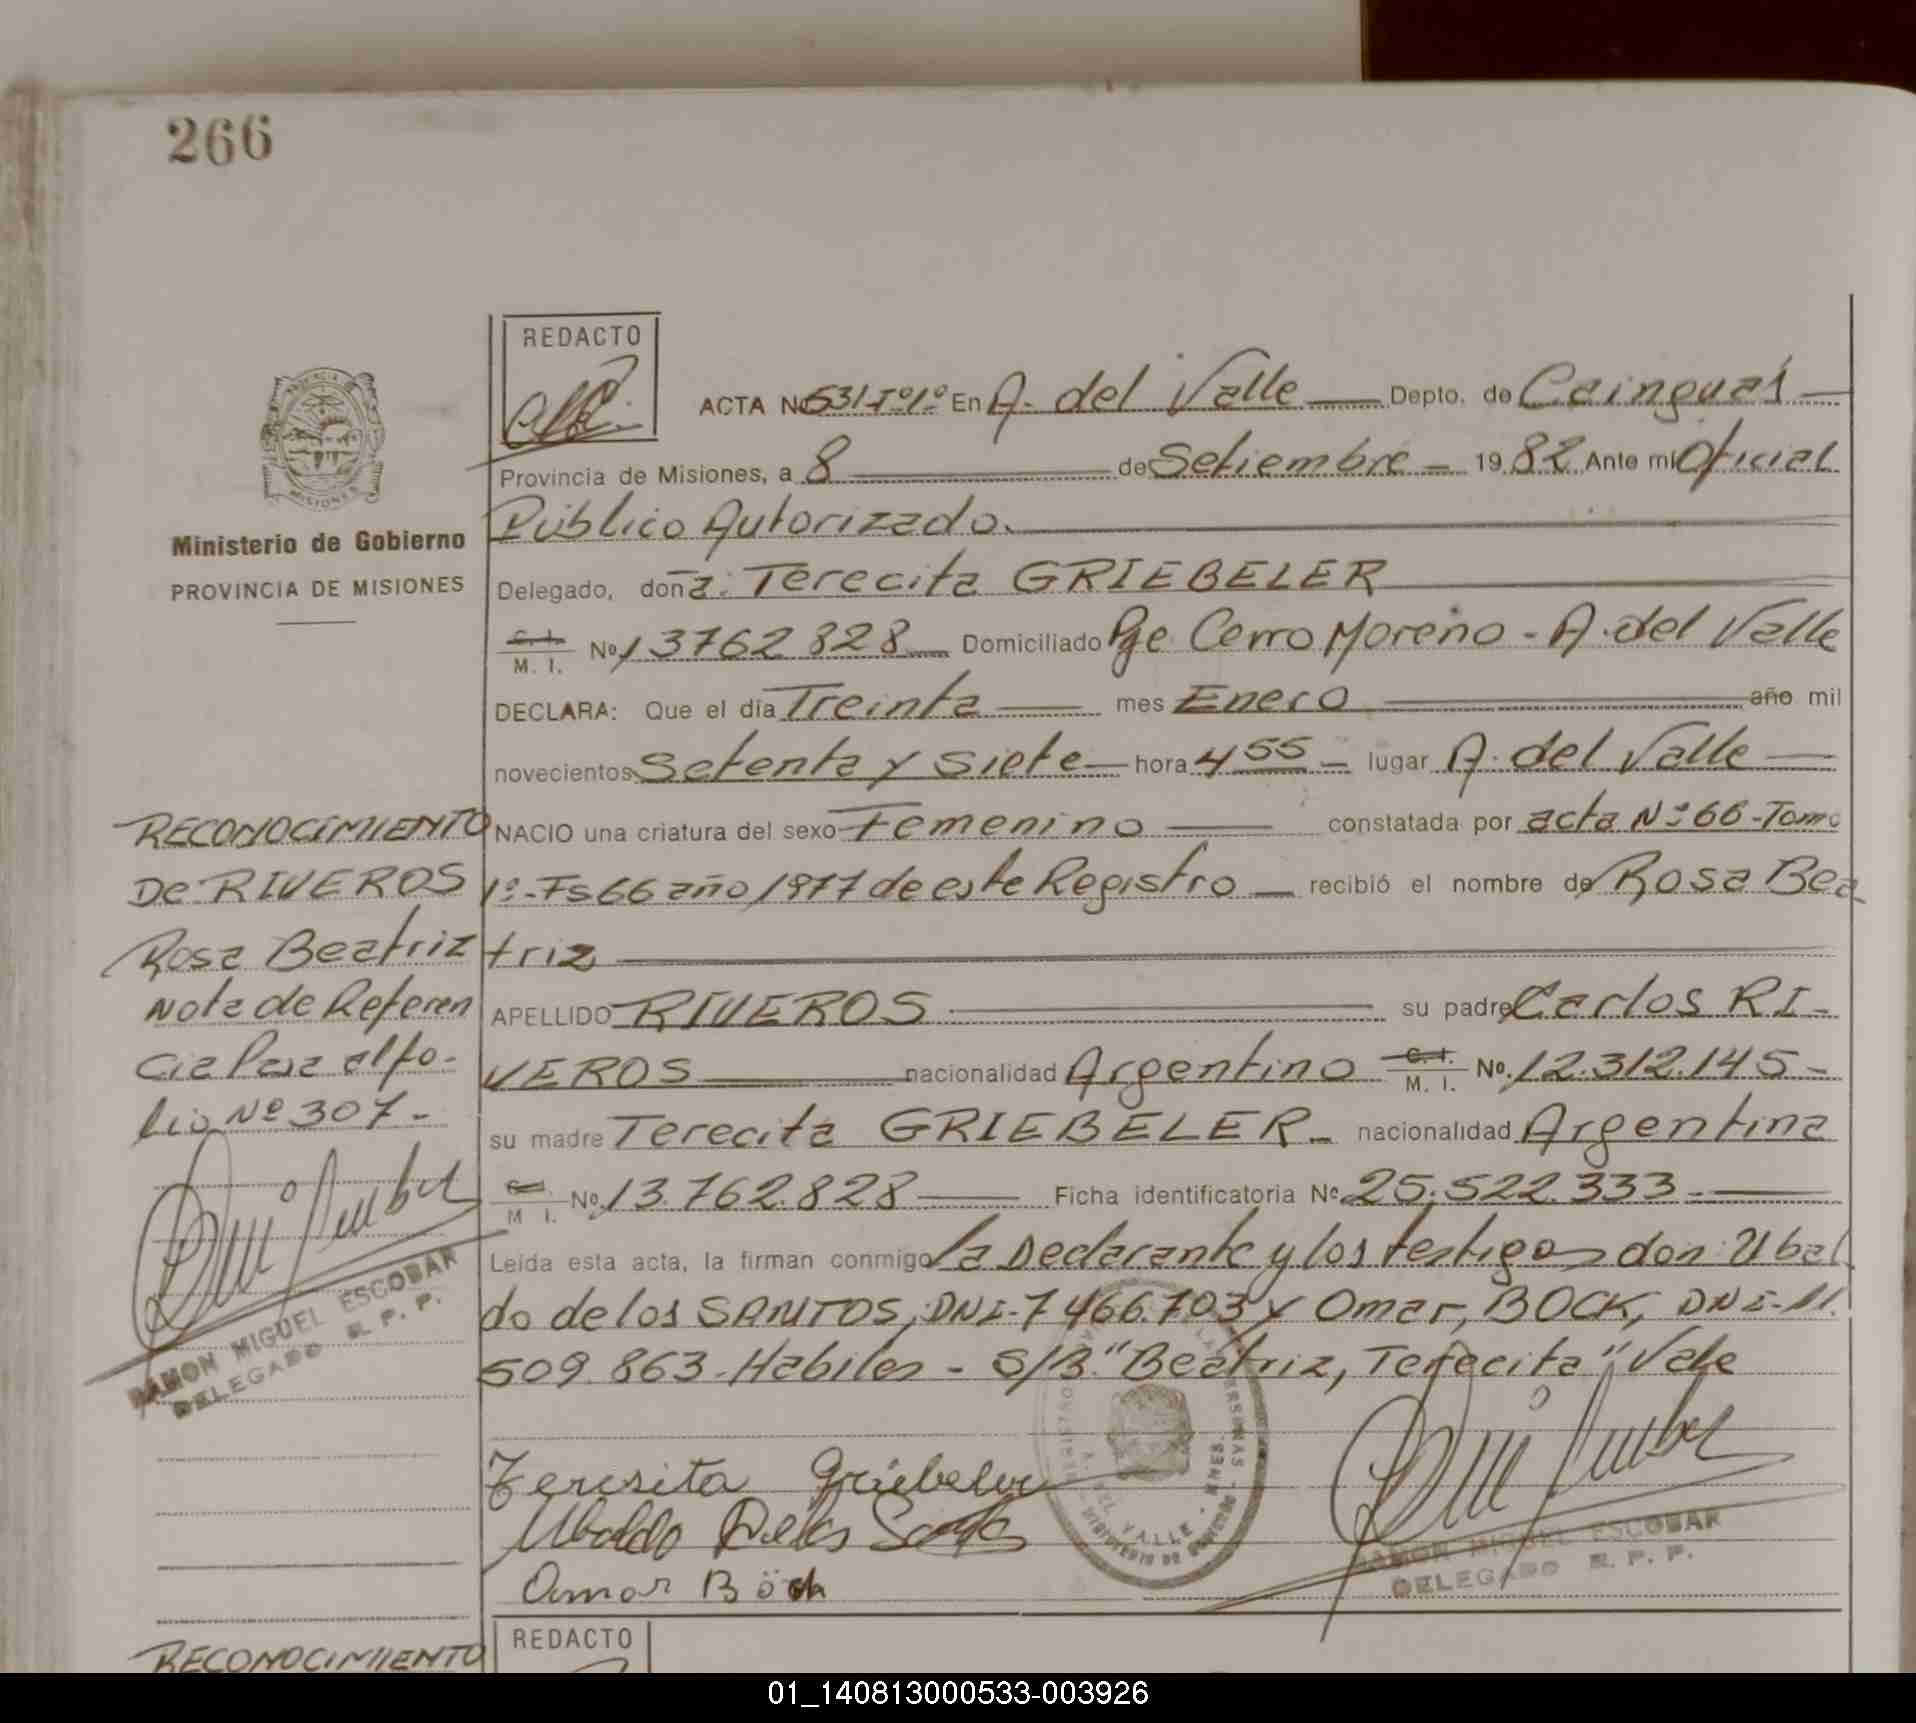 266
REDACTO
ACTA Nº 531-Tº1º En A. del Valle Depto. de Cainguás
Provincia de Misiones, a 8 de Setiembre 1982 Ante mi Oficial
Público Autorizado.
Ministerio de Gobierno
PROVINCIA DE MISIONES
Delegado, doña: Terecita GRIEBELER
C. I.
M. I. Nº 13762828 Domiciliado Pje Cerro Moreno - A. del Valle
DECLARA: Que el día Treinta mes Enero año mil
novecientos Setenta y Siete hora 4 55 lugar A. del Valle
NACIO una criatura del sexo Femenino constatada por acta Nº 66 - Tomo
1º - Fs 66 año 1977 de este Registro recibió el nombre de Rosa Bea
triz
APELLIDO RIVEROS su padre Carlos RI-
VEROS nacionalidad Argentino C. I. M. I. Nº. 12.312.145-
su madre Terecita GRIEBELER nacionalidad Argentina
M I. Nº 13.762.828 Ficha identificatoria Nº 25.522.333
Leída esta acta, la firman conmigo la Declarante y los testigos don: Ubal
do de los SANTOS, DNI-7466.703 y Omar, BOCK, DNI-11.
509.863-Habiles - S/B. "Beatriz, Terecita" Vale
Teresita Griebeler
Ubaldo De los Santos
Omar Böck
RECONOCIMIENTO
De RIVEROS
Rosa Beatriz
Nota de Referen
cia Pasa al fo-
lio Nº 307-
RAMON MIGUEL ESCOBAR
DELEGADO R. P. P.
RAMON MIGUEL ESCOBAR
DELEGADO R. P. P.
RECONOCIMIENTO
REDACTO
01_140813000533-003926